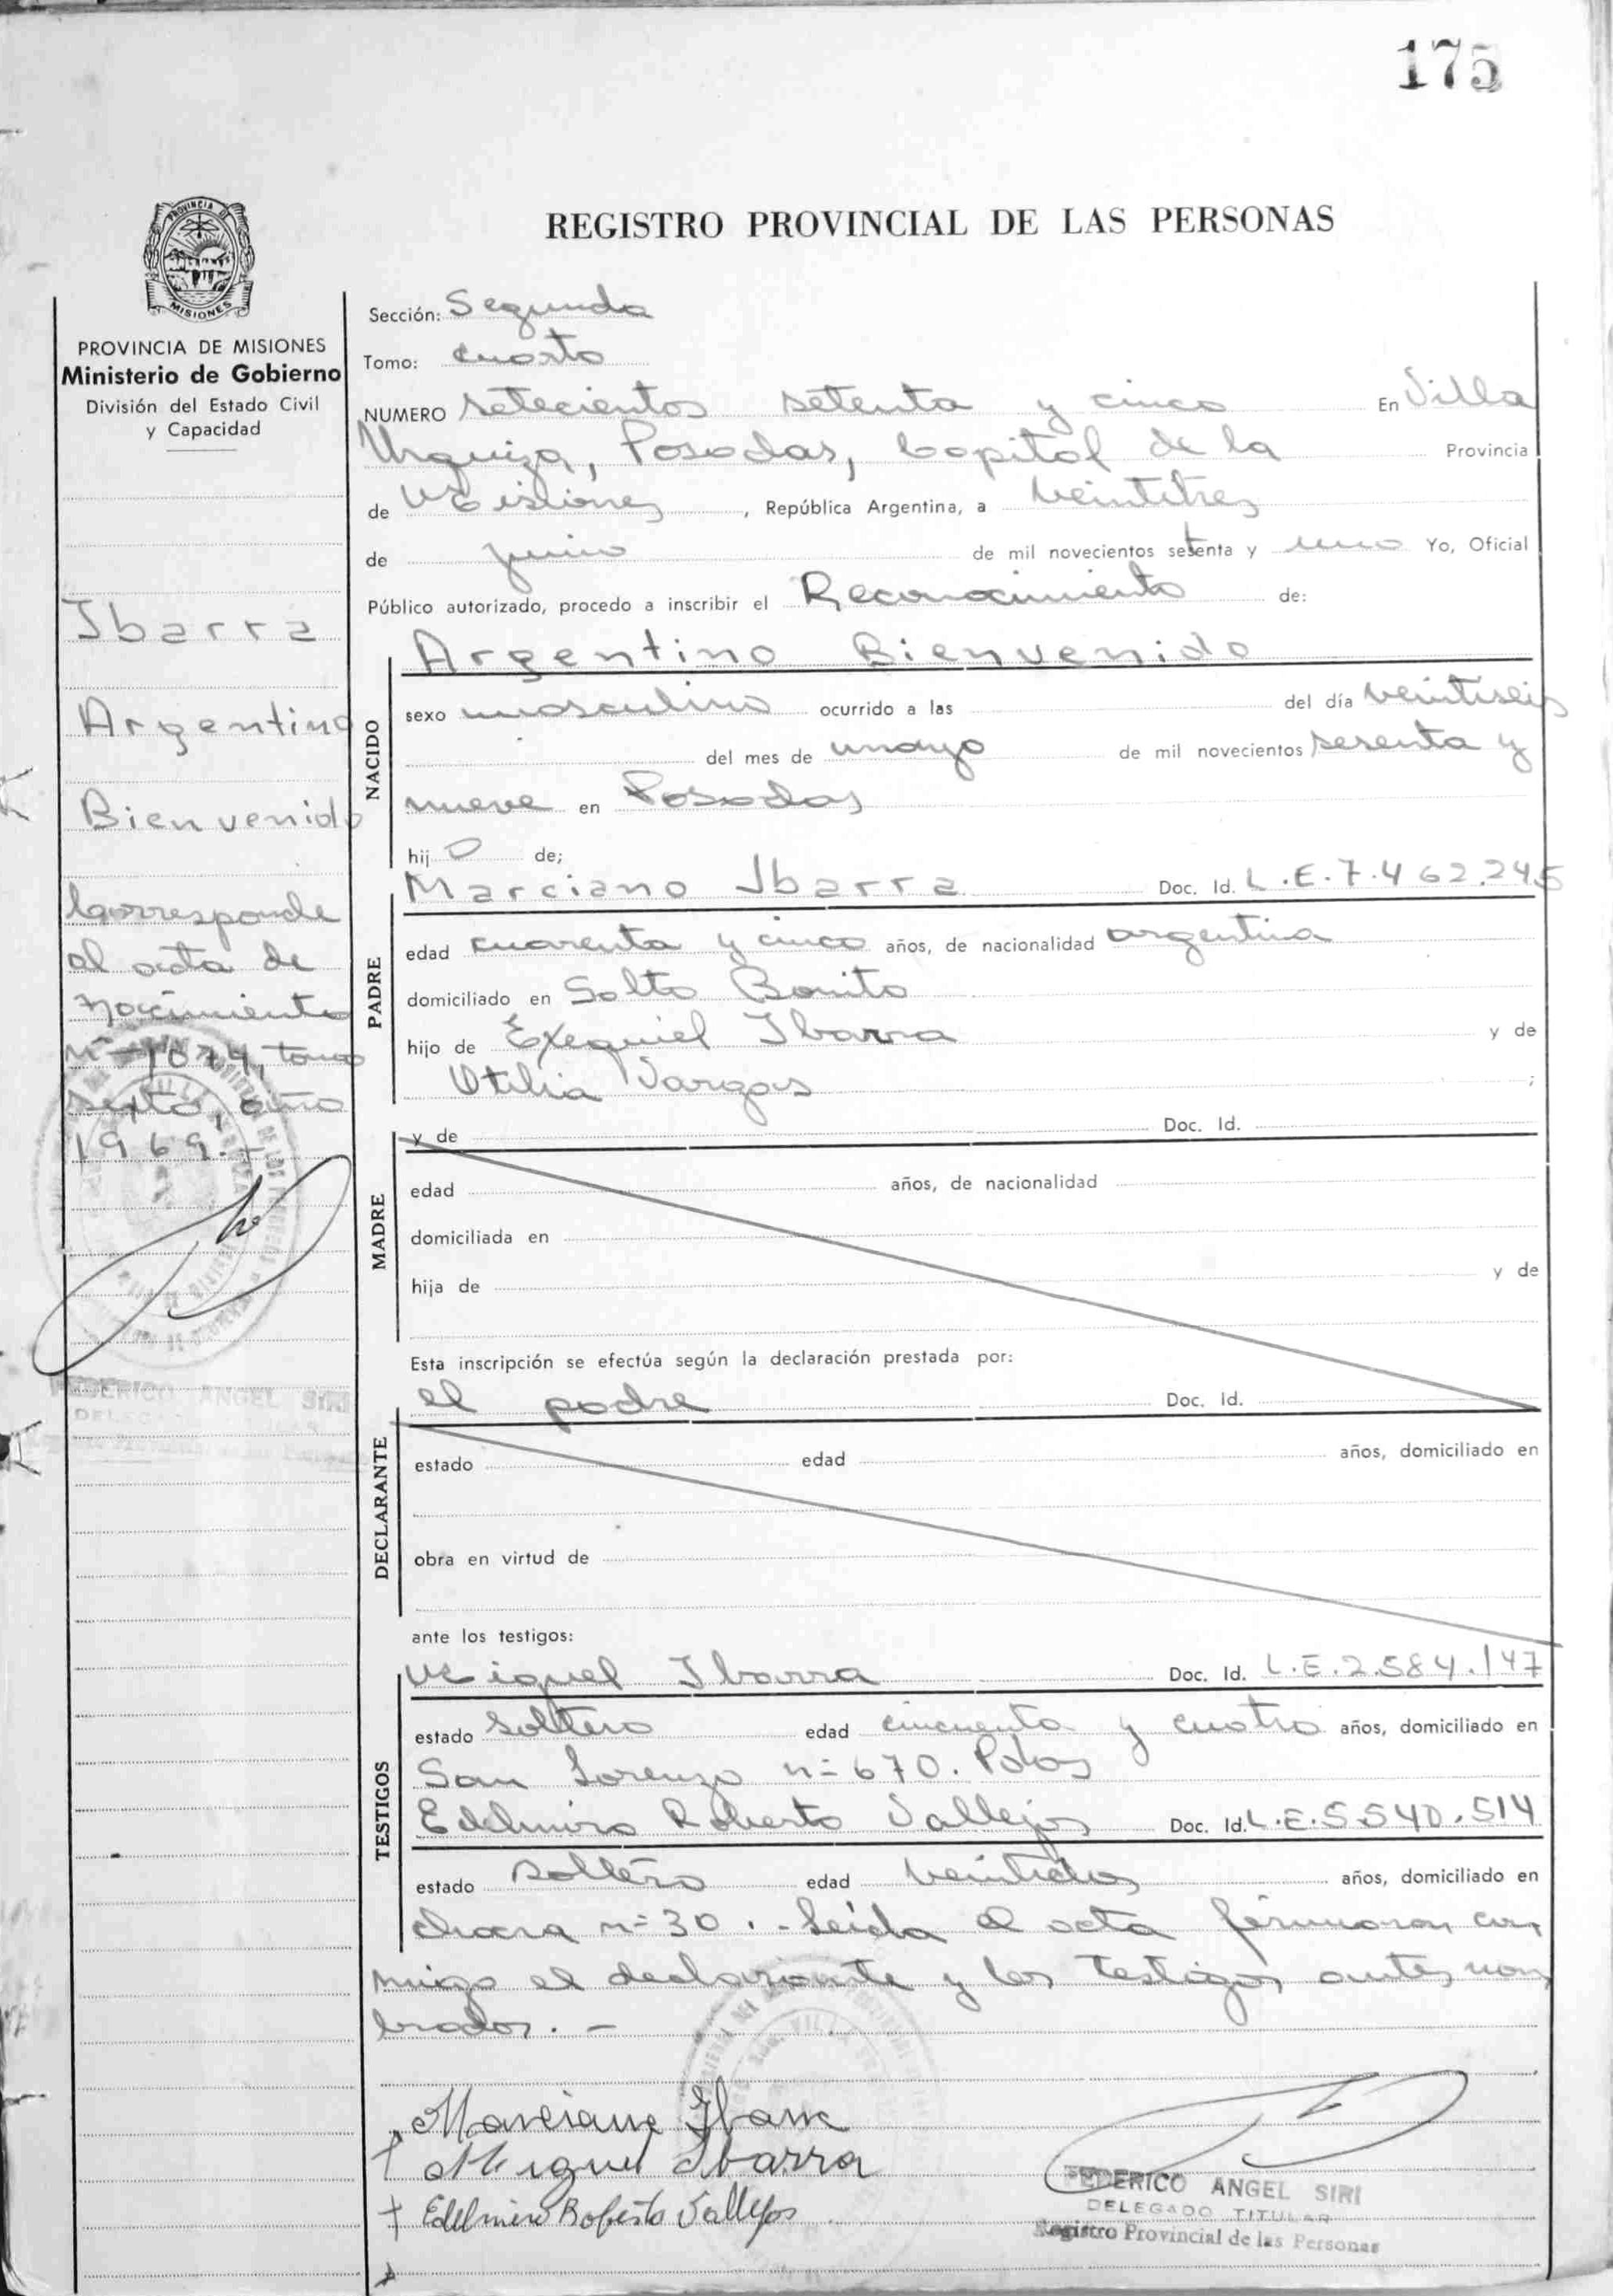 175
PROVINCIA DE
MISIONES
REGISTRO PROVINCIAL DE LAS PERSONAS
PROVINCIA DE MISIONES
Ministerio de Gobierno
División del Estado Civil
y Capacidad
Ibarra
Argentino
Bienvenido
Corresponde
al acta de
nacimiento
nº 1074, tomo
sexto, año
1969.-
FEDERICO ANGEL SIRI
Sección: Segunda
Tomo: cuarto
NUMERO setecientos setenta y cinco En Villa
Urquiza, Posadas, Capital de la Provincia
de Misiones, República Argentina, a veintitres
de junio de mil novecientos setenta y uno Yo, Oficial
Público autorizado, procedo a inscribir el Reconocimiento de:
Argentino Bienvenido
NACIDO
sexo masculino ocurrido a las del día veintiseis
del mes de mayo de mil novecientos sesenta y
nueve en Posadas
hijo de;
Marciano Ibarra Doc. Id. L.E.7.462.245
PADRE
edad cuarenta y cinco años, de nacionalidad argentina
domiciliado en Salto Bonito
hijo de Exequiel Ibarra y de
Otilia Vargas ;
MADRE
y de Doc. Id.
edad años, de nacionalidad
domiciliada en
hija de y de
Esta inscripción se efectúa según la declaración prestada por:
el padre Doc. Id.
DECLARANTE
estado edad años, domiciliado en
obra en virtud de
ante los testigos:
Miguel Ibarra Doc. Id. L.E.2.584.147
TESTIGOS
estado soltero edad cincuenta y cuatro años, domiciliado en
San Lorenzo nº 670. Pdas
Edelmiro Roberto Vallejos Doc. Id. L.E.5.540.514
estado soltero edad veintidos años, domiciliado en
chacra nº 30.- Leída el acta firmaron con
migo el declarante y los testigos antes nom
brados.-
Marciano Ibarra
Miguel Ibarra
Edelmiro Roberto Vallejos
FEDERICO ANGEL SIRI
DELEGADO TITULAR
Registro Provincial de las Personas